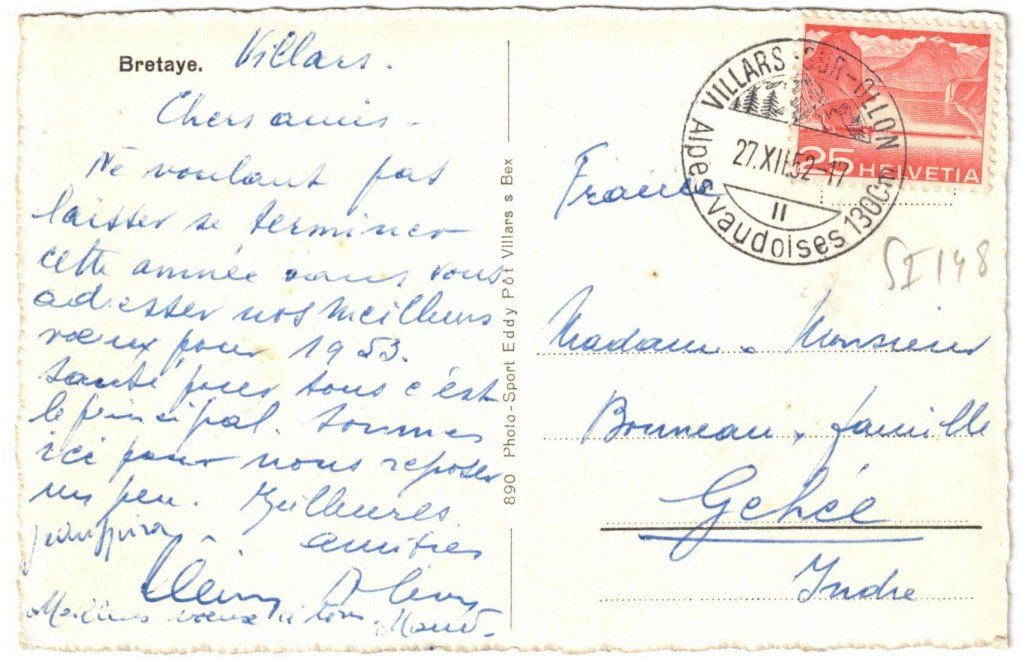 Bretaye. Villars.
Chers amis -
Ne voulant pas
laisser se terminer
cette année sans vous
adresser nos meilleurs
vœux pour 1953.
Santé pour tous c'est
le principal. Sommes
ici pour nous reposer
un peu. Meilleures
amitiés
Meilleurs vœux à tous
890 Photo-Sport Eddy Pôt Villars s Bex
VILLARS-SUR-OLLON
27.XII.52-17
II
Alpes vaudoises 1300m
25 HELVETIA
France
SI 148
Madame Monsieur
Bonneau famille
Gehée
Indre